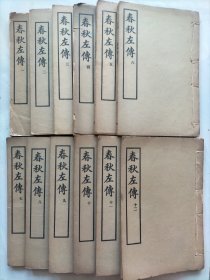 春秋左傳
春秋左傳 二
春秋左傳 三
春秋左傳 四
春秋左傳 五
春秋左傳 六
春秋左傳 七
春秋左傳 八
春秋左傳 九
春秋左傳 十
春秋左傳 十一
春秋左傳 十二